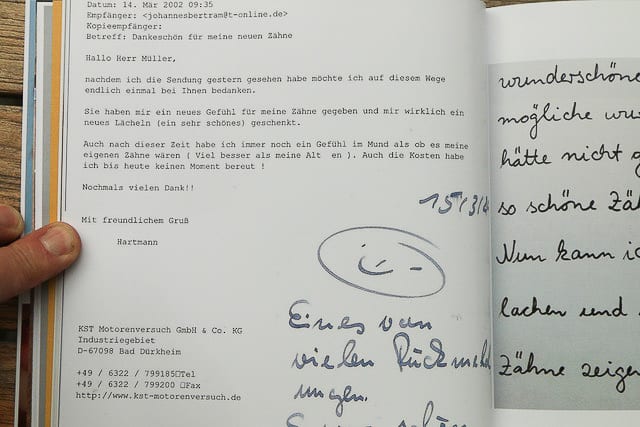 Datum: 14. Mär 2002 09:35
Empfänger: <johannesbertram@t-online.de>
Kopieempfänger:
Betreff: Dankeschön für meine neuen Zähne
Hallo Herr Müller,
nachdem ich die Sendung gestern gesehen habe möchte ich auf diesem Wege
endlich einmal bei Ihnen bedanken.
Sie haben mir ein neues Gefühl für meine Zähne gegeben und mir wirklich ein
neues Lächeln (ein sehr schönes) geschenkt.
Auch nach dieser Zeit habe ich immer noch ein Gefühl im Mund als ob es meine
eigenen Zähne wären ( Viel besser als meine Alt en ). Auch die Kosten habe
ich bis heute keinen Moment bereut !
Nochmals vielen Dank!!
Mit freundlichem Gruß
Hartmann
15/3/
Eines von
vielen Rückmeld
ungen.
KST Motorenversuch GmbH & Co. KG
Industriegebiet
D-67098 Bad Dürkheim
+49 / 6322 / 799185 Tel
+49 / 6322 / 799200 Fax
http://www.kst-motorenversuch.de
wunderschöne
mögliche
hätte nicht
so schöne Zäh
Nun kann
lachen und
Zähne zeigen